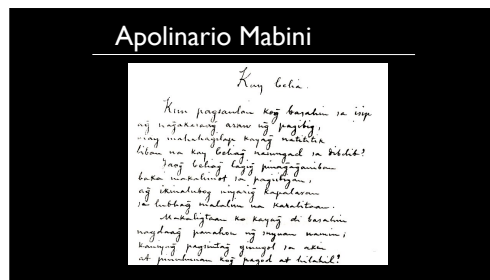 Apolinario Mabini
Kay Celia.
Kun pagsaulan kog̃ basahin sa isip
ag̃ nag̃akaraag̃ araw ng̃ pagibig,
may mahahagilap kayag̃ natititik
liban na kay Celiag̃ namugad sa dibdib?
Yaog̃ Celiag̃ lagig̃ pinag̃ag̃aniban
baka makalimot sa pagiibigan,
ag̃ ikinalubog niyarig̃ kapalaran
sa lubhag̃ malalim na karalitaan.
Makaligtaan ko kayag̃ di basahin
nagdaag̃ panahon ng̃ suyuan namin;
kaniyag̃ pagsintag̃ ginugol sa akin
at pinuhunan kog̃ pagod at hilahil?